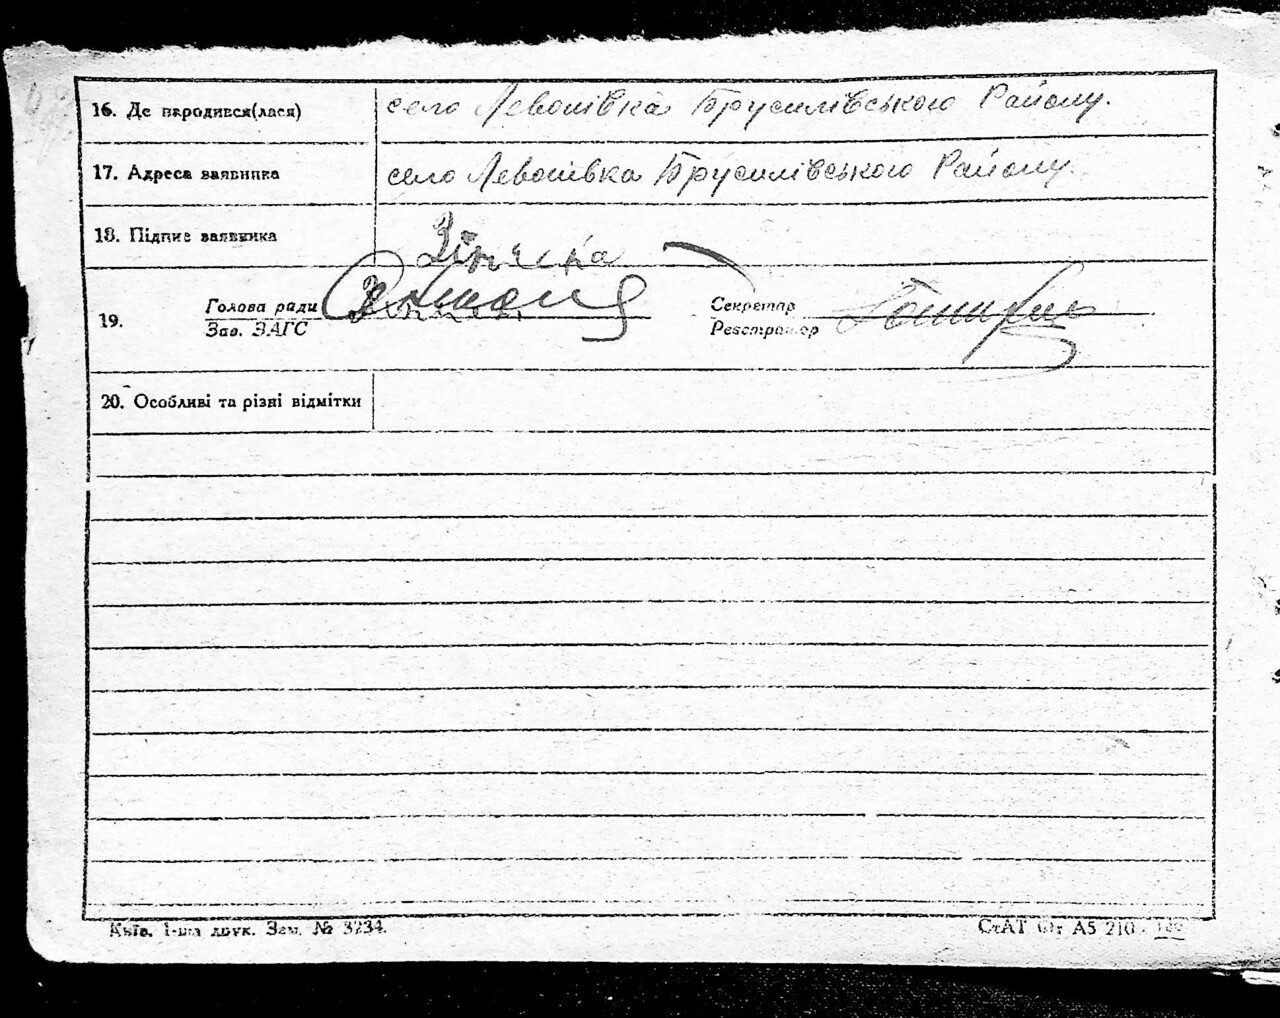 16. Де народився(лася) село Левошівка Брусилівського Району.
17. Адреса заявника село Левошівка Брусилівського Району.
18. Підпис заявника
19. Голова ради Секретар
Зав. ЗАГС Реєстратор
20. Особливі та різні відмітки
Київ. 1-ша друк. Зам. № 3234. СтАТ Фт А5 210